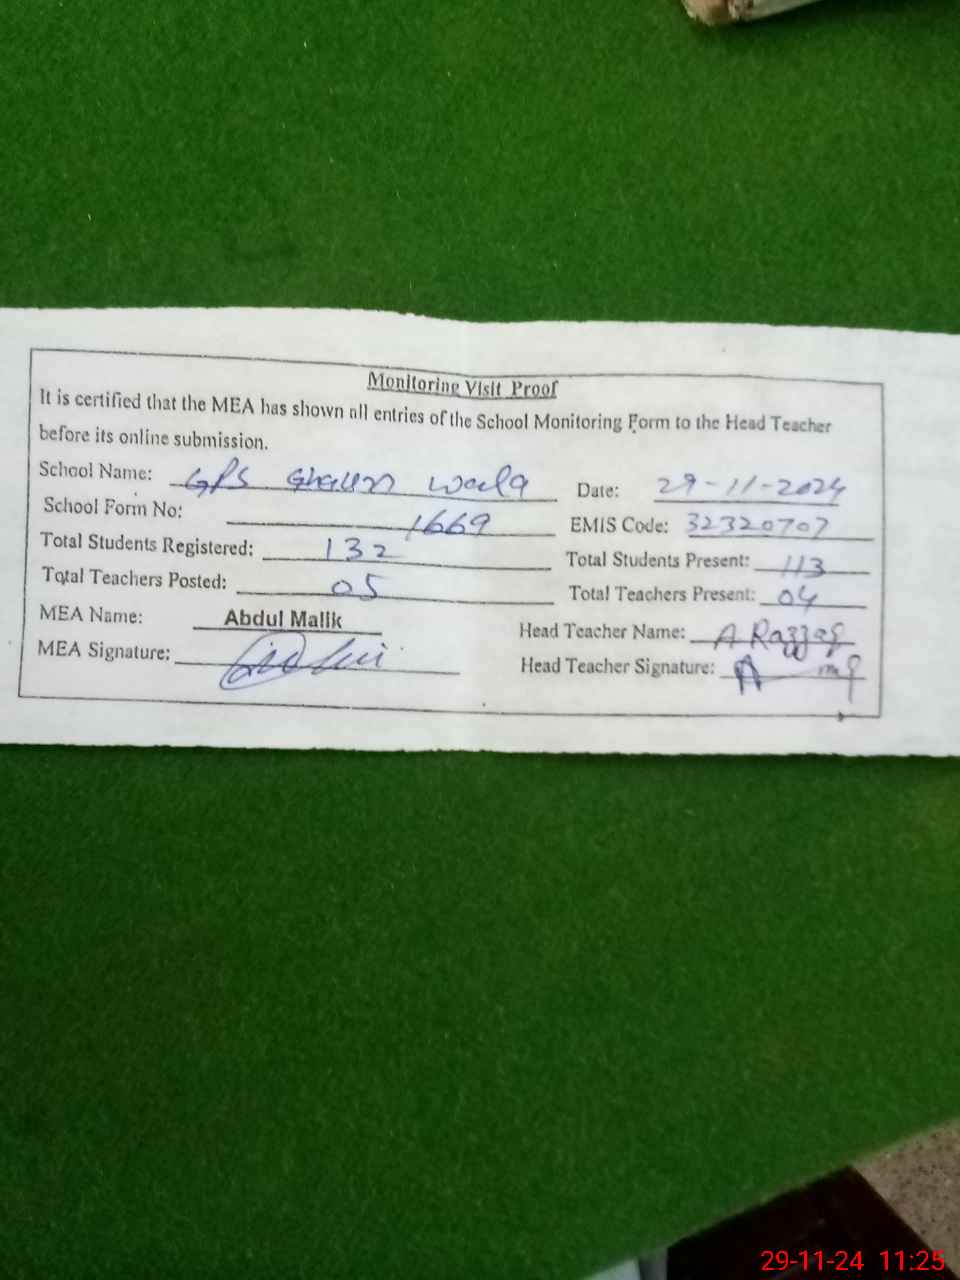 Monitoring Visit Proof
It is certified that the MEA has shown all entries of the School Monitoring Form to the Head Teacher
before its online submission.
School Name: GPS Wala Date: 29-11-2024
School Form No: 1669 EMIS Code: 32320707
Total Students Registered: 132 Total Students Present: 113
Total Teachers Posted: 05 Total Teachers Present: 04
MEA Name: Abdul Malik Head Teacher Name: A Razzaq
MEA Signature: Head Teacher Signature:
29-11-24 11:25